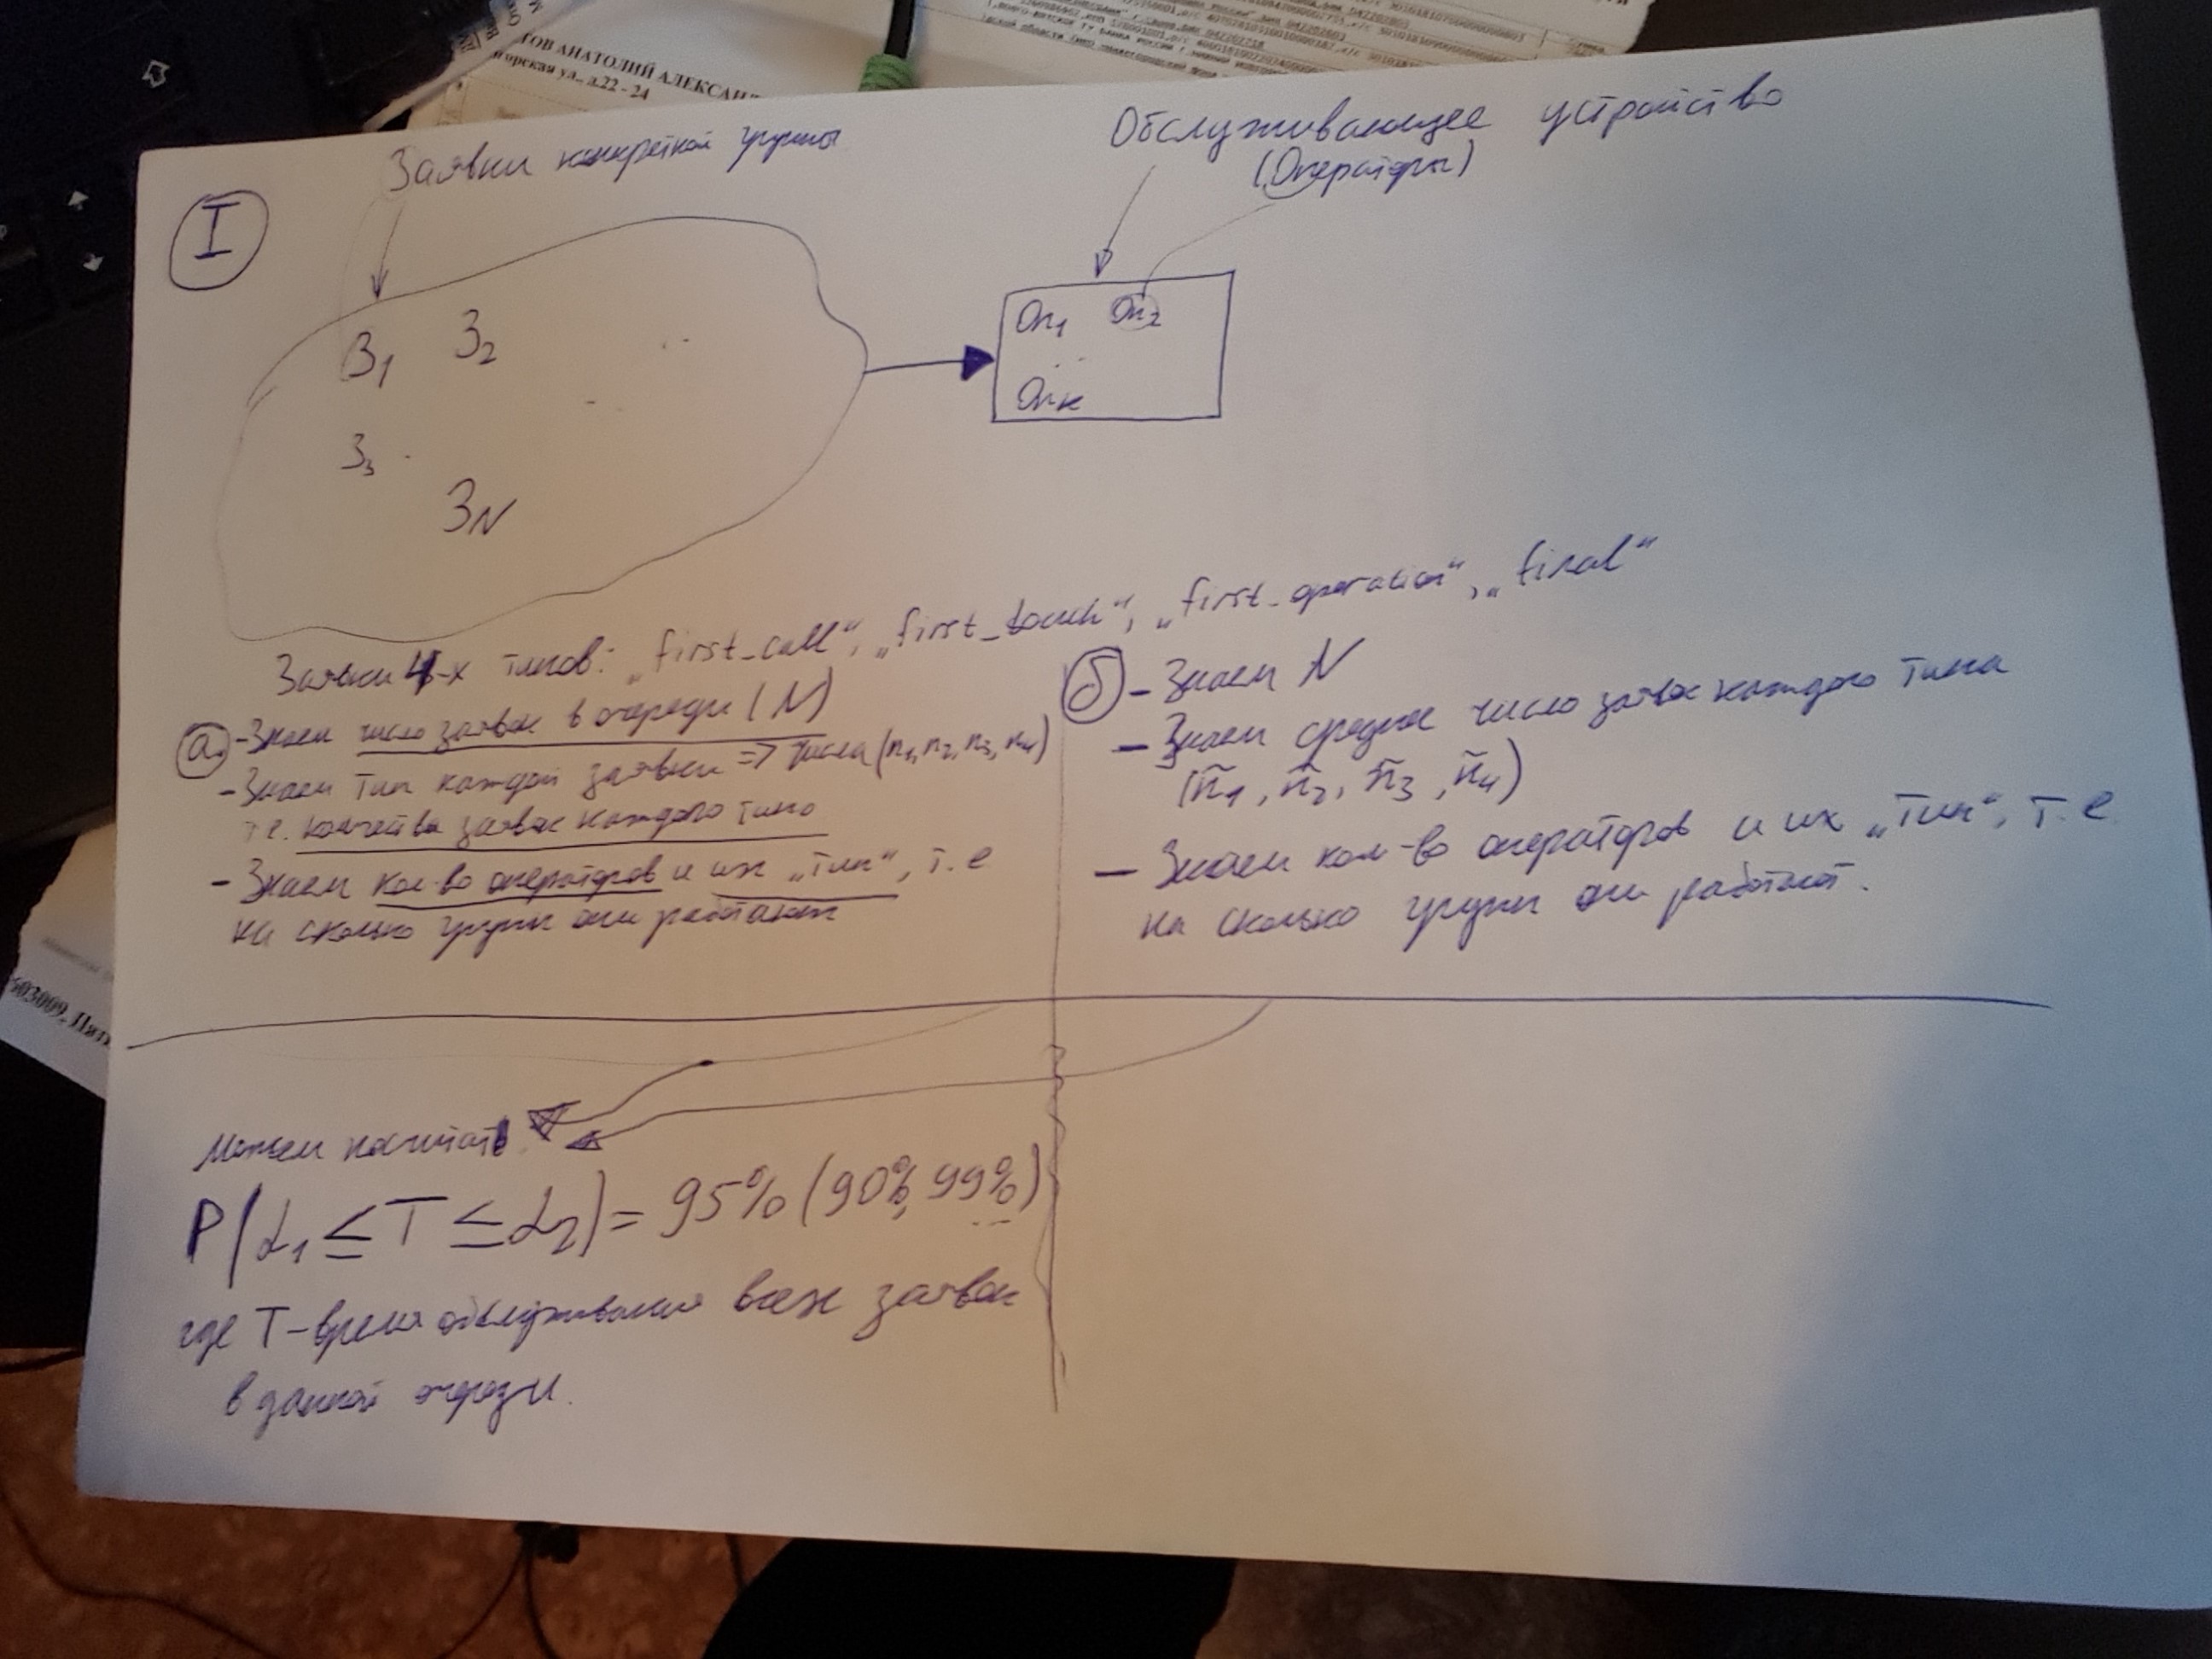 ТОВ АНАТОЛИЙ АЛЕКСАНД
горская ул., д.22 - 24
603009,
I
Заявки конкретной группы
Обслуживающее устройство
(Операторы)
З1 З2 ...
З3
ЗN
Оп1 Оп2
...
Опк
Заявки 4-х типов: „first_call“, „first_touch“, „first_operation“, „final“
а) - Знаем число заявок в очереди (N)
- Знаем тип каждой заявки => числа (n1, n2, n3, n4)
т.е. количества заявок каждого типа
- Знаем кол-во операторов и их „тип“, т.е
на сколько групп они работают
б) - Знаем N
- Знаем среднее число заявок каждого типа
(ñ1, ñ2, ñ3, ñ4)
- Знаем кол-во операторов и их „тип“, т.е.
на сколько групп они работают.
Можем посчитать
P(α1 ≤ T ≤ α2) = 95% (90%, 99%)
где T - время обслуживания всех заявок
в данной очереди.